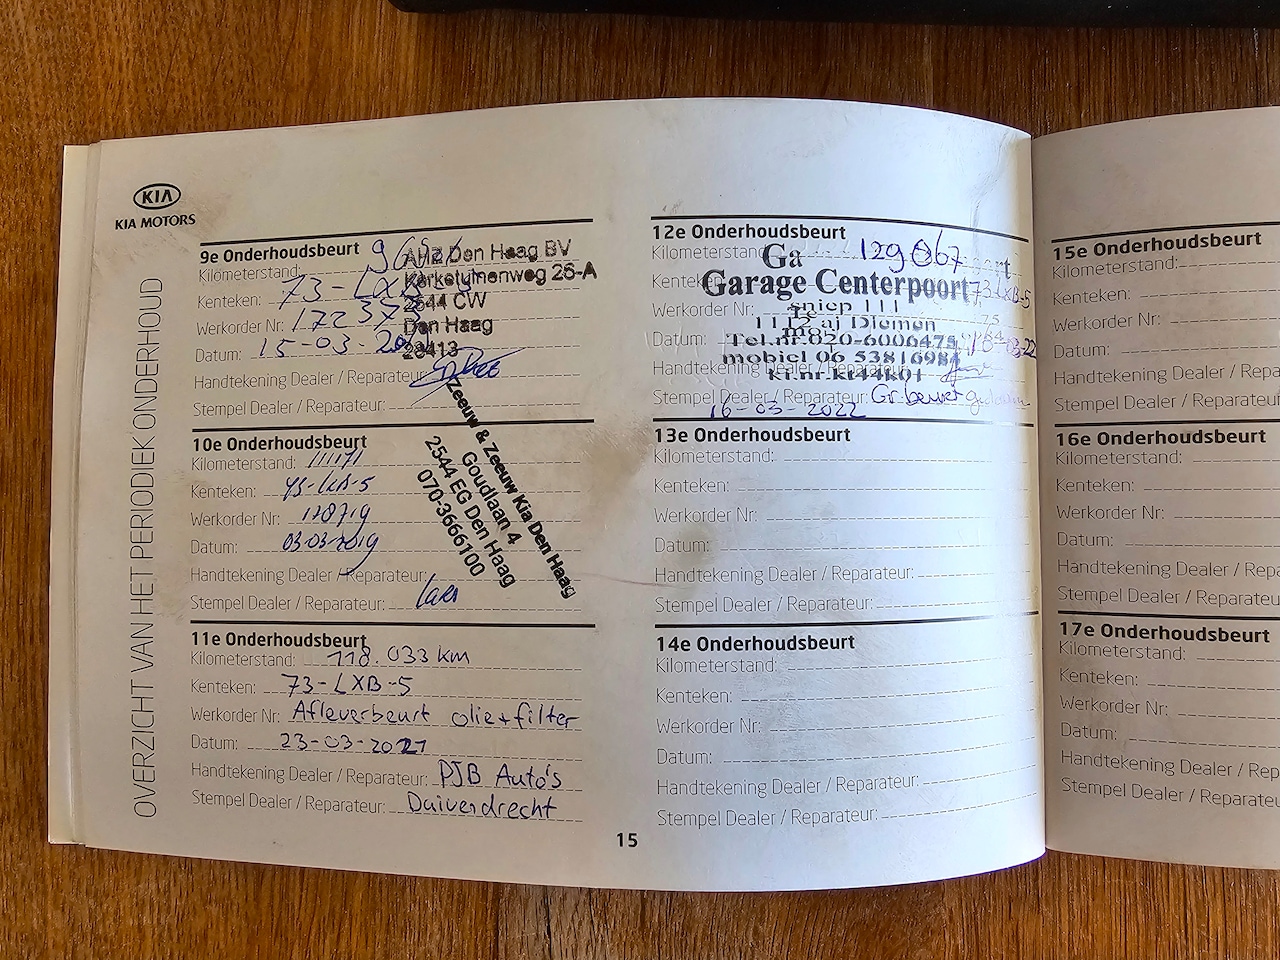 KIA
KIA MOTORS
OVERZICHT VAN HET PERIODIEK ONDERHOUD
9e Onderhoudsbeurt
Kilometerstand:
Kenteken: 73-LXB-5
Werkorder Nr: 172572
Datum: 15-03-20
Handtekening Dealer / Reparateur:
Stempel Dealer / Reparateur:
Den Haag BV
Kerketuinenweg 26-A
2544 CW
Den Haag
28413
10e Onderhoudsbeurt
Kilometerstand: 111171
Kenteken:
Werkorder Nr:
Datum: 03-03-2019
Handtekening Dealer / Reparateur:
Stempel Dealer / Reparateur:
Zeeuw & Zeeuw Kia Den Haag
Goudlaan 4
2544 EG Den Haag
070-3666100
11e Onderhoudsbeurt
Kilometerstand: 118.033 km
Kenteken: 73-LXB-5
Werkorder Nr: Afleverbeurt olie+filter
Datum: 23-03-2021
Handtekening Dealer / Reparateur: PJB Auto's
Stempel Dealer / Reparateur: Duivendrecht
12e Onderhoudsbeurt
Kilometerstand: 129067
Kenteken: 73-LXB-5
Werkorder Nr:
Datum:
Handtekening Dealer / Reparateur:
Stempel Dealer / Reparateur: Gr. beurt
16-03-2022
Ga
Garage Centerpoort
sniep 111
1112 aj Diemen
Tel.nr.020-6006475
mobiel 06 53816984
13e Onderhoudsbeurt
Kilometerstand:
Kenteken:
Werkorder Nr:
Datum:
Handtekening Dealer / Reparateur:
Stempel Dealer / Reparateur:
14e Onderhoudsbeurt
Kilometerstand:
Kenteken:
Werkorder Nr:
Datum:
Handtekening Dealer / Reparateur:
Stempel Dealer / Reparateur:
15
15e Onderhoudsbeurt
Kilometerstand:
Kenteken:
Werkorder Nr:
Datum:
Handtekening Dealer / Repa
Stempel Dealer / Reparateu
16e Onderhoudsbeurt
Kilometerstand:
Kenteken:
Werkorder Nr:
Datum:
Handtekening Dealer / Repa
Stempel Dealer / Reparateu
17e Onderhoudsbeurt
Kilometerstand:
Kenteken:
Werkorder Nr:
Datum:
Handtekening Dealer / Rep
Stempel Dealer / Reparateu